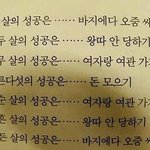 살의 성공은 …… 바지에다 오줌 싸
두 살의 성공은 …… 왕따 안 당하기
무 살의 성공은 …… 여자랑 여관 가
른다섯의 성공은 …… 돈 모으기
순 살의 성공은 …… 여자랑 여관 가
흔 살의 성공은 …… 왕따 안 당하기
든 살의 성공은 …… 바지에다 오줌